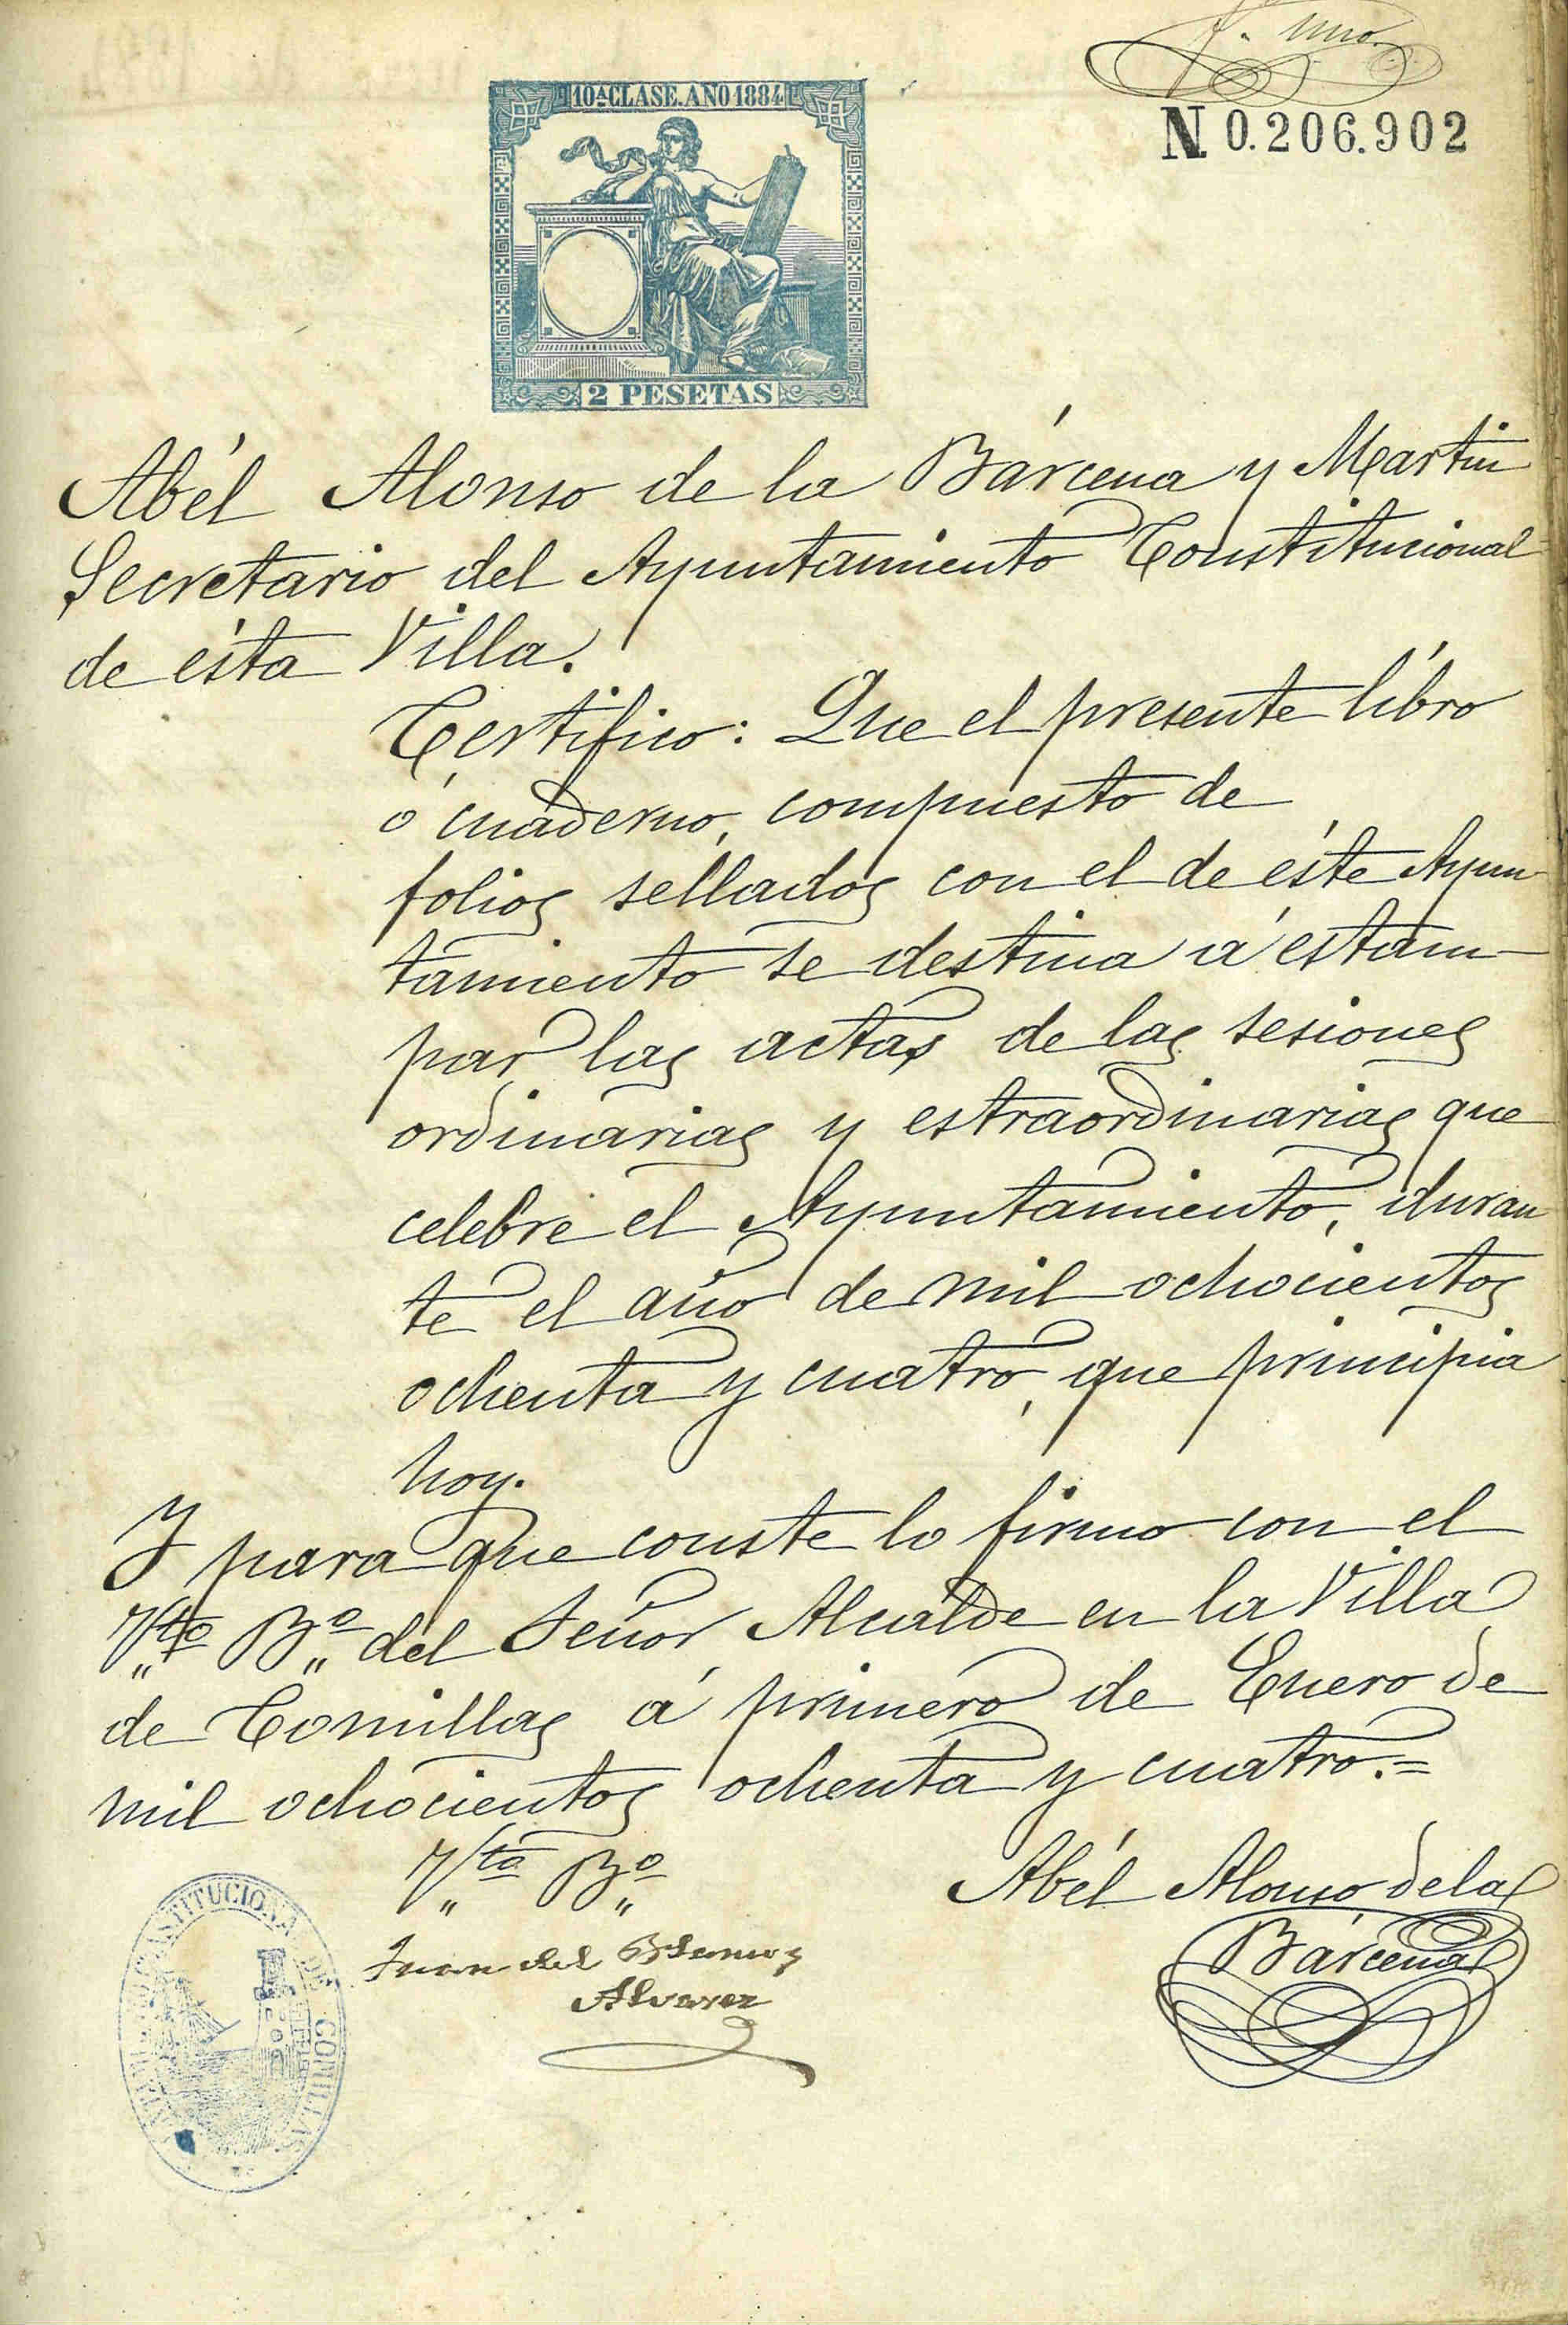 f. uno.
10ª CLASE. AÑO 1884
N 0.206.902
2 PESETAS
Abél Alonso de la Bárcena y Martin
Secretario del Ayuntamiento Constitucional
de ésta Villa.
Certifico: Que el presente libro
ó cuaderno, compuesto de
folios sellados con el de éste Ayun-
tamiento se destina á estam-
par las actas de las sesiones
ordinarias y estraordinarias que
celebre el Ayuntamiento, duran
te el año de mil ochocientos
ochenta y cuatro, que principia
hoy.
Y para que conste lo firmo con el
Vto Bº del Señor Alcalde en la Villa
de Comillas á primero de Enero de
mil ochocientos ochenta y cuatro.=
Vto Bº
Abél Alonso de la
Bárcena
Juan del
Alvarez
CONSTITUCIONAL DE COMILLAS